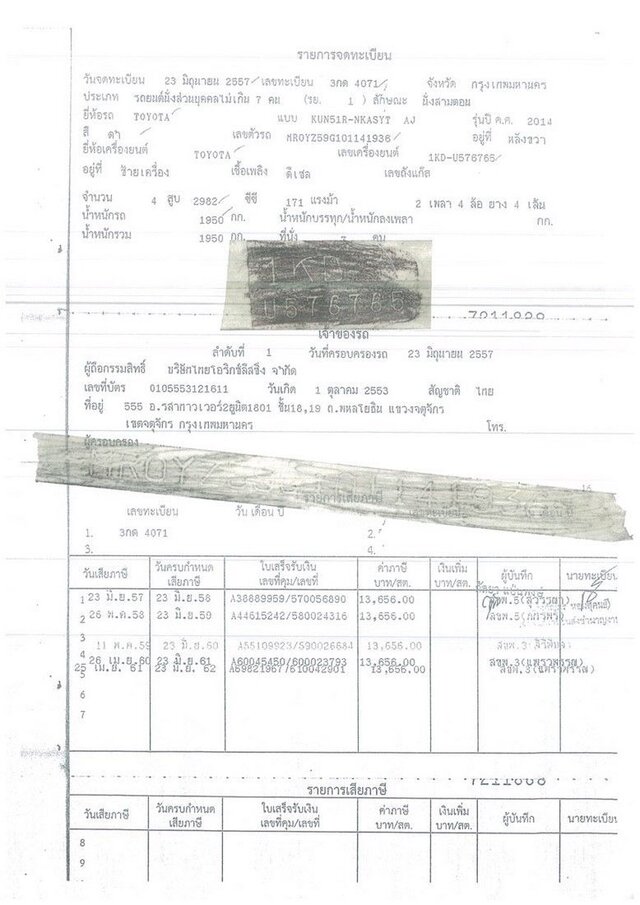 รายการจดทะเบียน
วันจดทะเบียน 23 มิถุนายน 2557 เลขทะเบียน 3กด 4071 จังหวัด กรุงเทพมหานคร
ประเภท รถยนต์นั่งส่วนบุคคลไม่เกิน 7 คน (รย. 1 ) ลักษณะ นั่งสามตอน
ยี่ห้อรถ TOYOTA แบบ KUN51R-NKASYT AJ รุ่นปี ค.ศ. 2014
สี ดำ เลขตัวรถ MR0YZ59G101141936 อยู่ที่ หลังขวา
ยี่ห้อเครื่องยนต์ TOYOTA เลขเครื่องยนต์ 1KD-U576765
อยู่ที่ ซ้ายเครื่อง เชื้อเพลิง ดีเซล เลขถังแก๊ส
จำนวน 4 สูบ 2982 ซีซี 171 แรงม้า 2 เพลา 4 ล้อ ยาง 4 เส้น
น้ำหนักรถ 1950 กก. น้ำหนักบรรทุก/น้ำหนักลงเพลา กก.
น้ำหนักรวม 1950 กก. ที่นั่ง 7 คน
1KD
U576765
เจ้าของรถ
ลำดับที่ 1 วันที่ครอบครองรถ 23 มิถุนายน 2557
ผู้ถือกรรมสิทธิ์ บริษัทไทยโอริกซ์ลีสซิ่ง จำกัด
เลขที่บัตร 0105553121611 วันเกิด 1 ตุลาคม 2553 สัญชาติ ไทย
ที่อยู่ 555 อ.รสาทาวเวอร์2ยูนิต1801 ชั้น18,19 ถ.พหลโยธิน แขวงจตุจักร
เขตจตุจักร กรุงเทพมหานคร โทร.
ผู้ครอบครอง
รายการเสียภาษี
เลขทะเบียน วัน เดือน ปี เลขทะเบียน วัน เดือน ปี
1. 3กด 4071 2.
3. 4.
วันเสียภาษี วันครบกำหนดเสียภาษี ใบเสร็จรับเงิน เลขที่คุม/เลขที่ ค่าภาษี บาท/สต. เงินเพิ่ม บาท/สต. ผู้บันทึก นายทะเบียน
1 23 มิ.ย.57 23 มิ.ย.58 A38889959/570056890 13,656.00
2 26 พ.ค.58 23 มิ.ย.59 A44615242/580024316 13,656.00
3 11 พ.ค.59 23 มิ.ย.60 A55109923/590026684 13,656.00
4 26 เม.ย.60 23 มิ.ย.61 A60045450/600023793 13,656.00 ลขพ.3(แพรวพรรณ)
5 25 เม.ย. 61 23 มิ.ย. 62 A69821967/610042901 13,656.00
6
7
รายการเสียภาษี
วันเสียภาษี วันครบกำหนดเสียภาษี ใบเสร็จรับเงิน เลขที่คุม/เลขที่ ค่าภาษี บาท/สต. เงินเพิ่ม บาท/สต. ผู้บันทึก นายทะเบียน
8
9